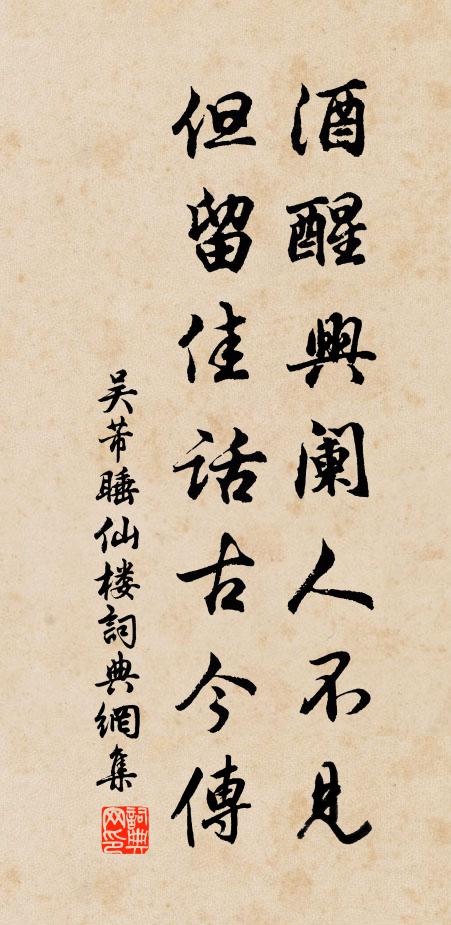 酒醒興阑人不見
但留佳話古今傳
吴芾睡仙楼詞典網集
詞典网印